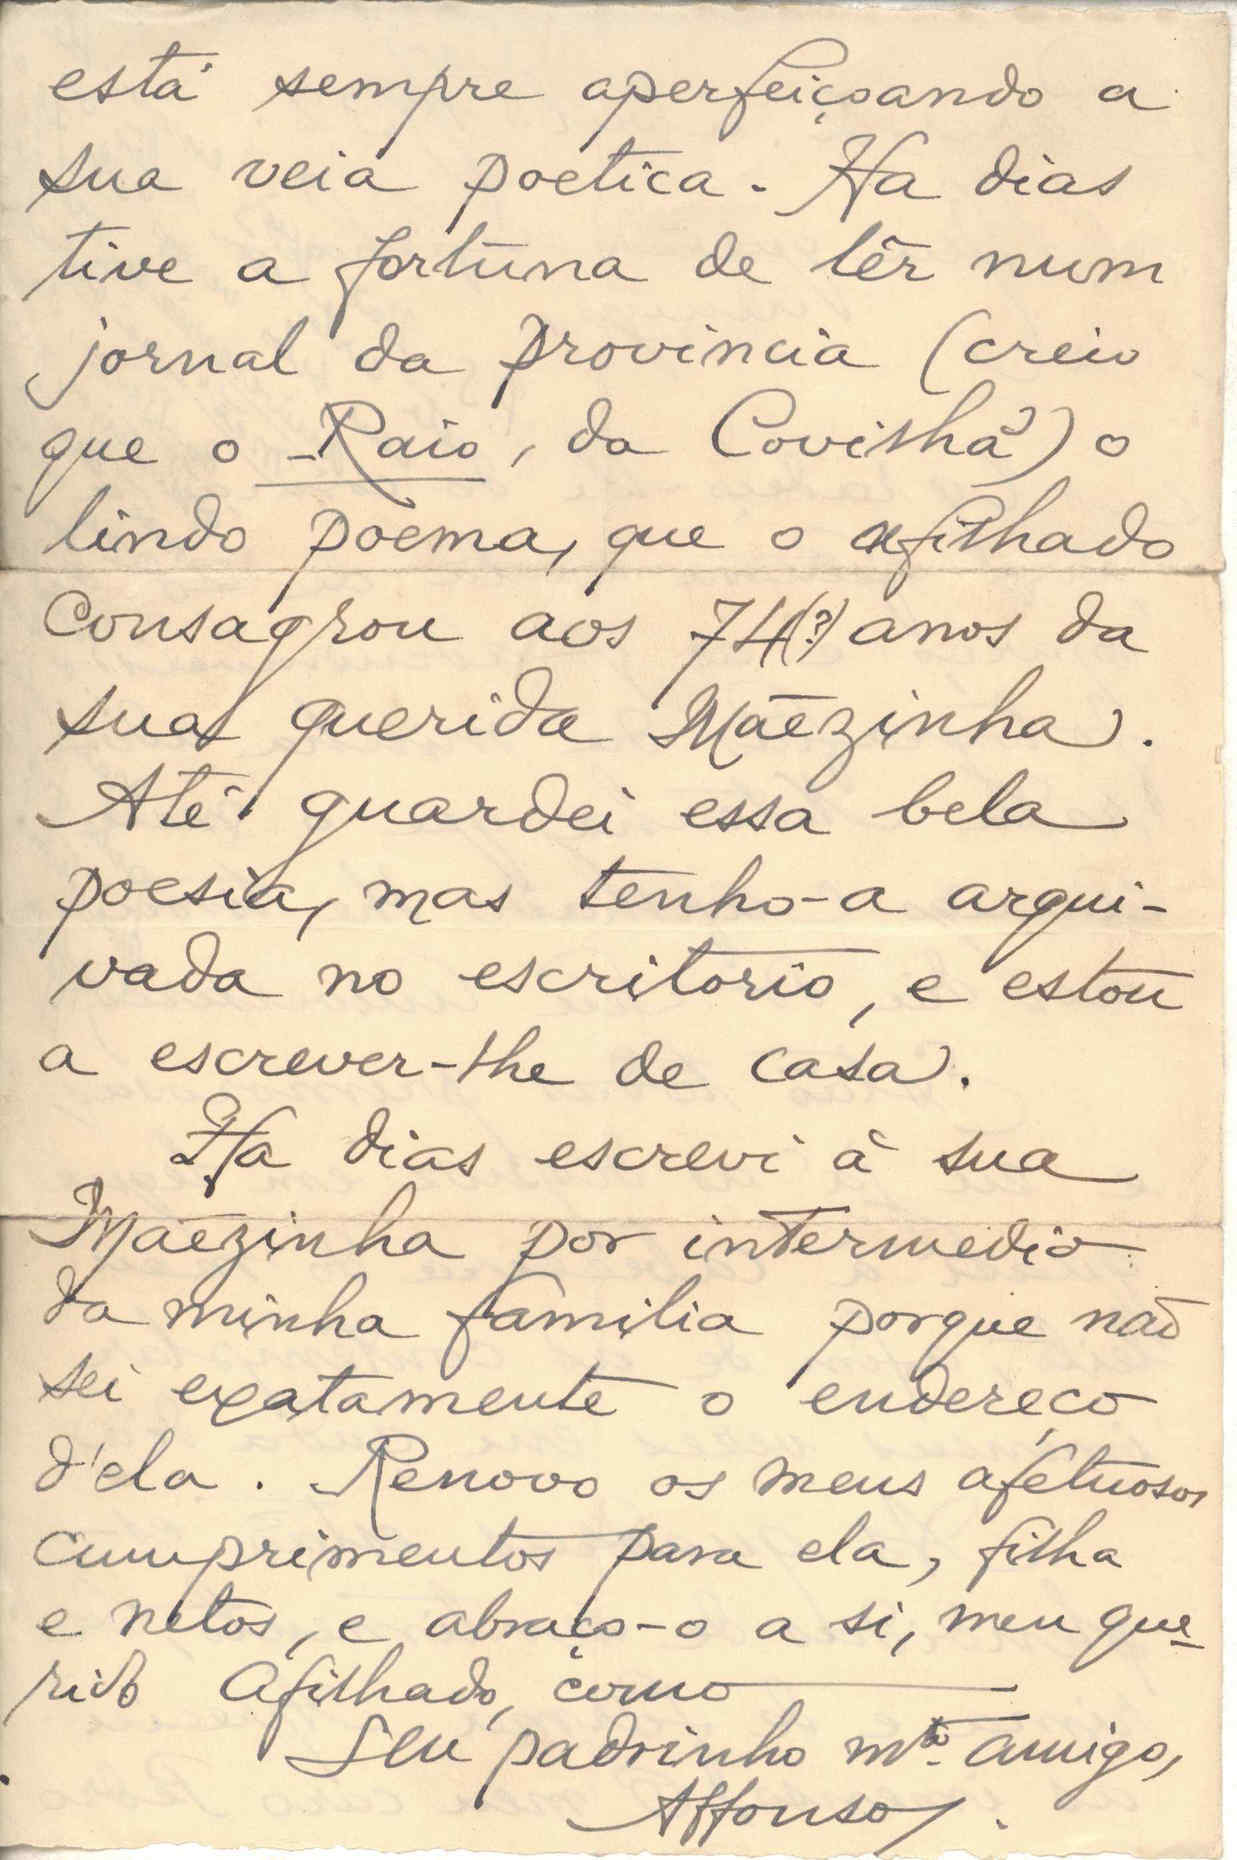 está sempre aperfeiçoando a
sua veia poetica. Ha dias
tive a fortuna de lêr num
jornal da provincia (creio
que o Raio, da Covilhã) o
lindo poema, que o afilhado
consagrou aos 74(?) anos da
sua querida Mãezinha.
Até guardei essa bela
poesia, mas tenho-a arqui-
vada no escritorio, e estou
a escrever-lhe de casa.
Ha dias escrevi à sua
Mãezinha por intermedio
da minha familia porque não
sei exatamente o endereço
d'ela. Renovo os meus afetuosos
cumprimentos para ela, filha
e netos, e abraço-o a si, meu que-
rido afilhado, como
Seu padrinho mto. amigo,
Affonso.